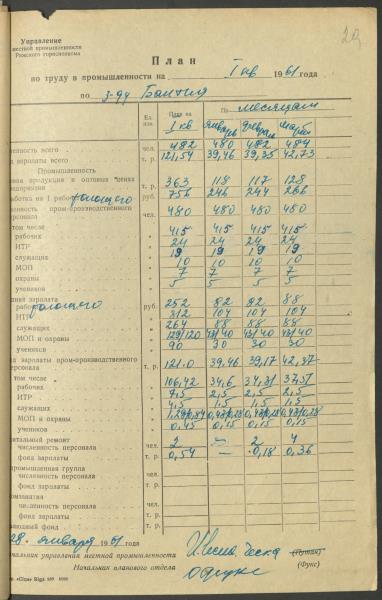 29
Управление
местной промышленности
Рижского горисполкома
План
по труду в промышленности на I кв 1961 года
по з-ду Балтия
Ед. изм. План на 1 кв По месяцам январь февраль март
ленность всего чел. 482 480 482 484
зарплаты всего т. р. 121,54 39,46 39,35 42,73
Промышленность
вая продукция в оптовых ценах
предприятия т. р. 363 118 117 128
работка на 1 рабочего руб. 756 246 244 266
ленность пром-производственного
персонала чел. 480 480 480 480
том числе
рабочих 415 415 415 415
ИТР 24 24 24 24
служащих 19 19 19 19
МОП 10 10 10 10
охраны 7 7 7 7
учеников 5 5 5 5
дная зарплата
рабочего руб. 252 82 82 88
ИТР 312 104 104 104
служащих 264 88 88 88
МОП и охраны 129/120 43/40 43/40 43/40
учеников 90 30 30 30
д зарплаты пром-производственного
персонала т. р. 121.0 39,46 39,17 42,37
том числе
рабочих т. р. 106,42 34,6 34,31 37,51
ИТР 7,5 2,5 2,5 2,5
служащих 4,5 1,5 1,5 1,5
МОП и охраны 1,29/0,84 0,43/0,28 0,43/0,28 0,43/0,28
учеников 0,45 0,15 0,15 0,15
итальный ремонт
численность персонала чел. 2 — 2 4
фонд зарплаты т. р. 0,54 — 0,18 0,36
промышленная группа
численность персонала чел.
фонд зарплаты т. р.
численность персонала чел.
фонд зарплаты т. р.
фонд т. р.
28 января 1961 года
Начальник управления местной промышленности
Начальник планового отдела (Фукс)